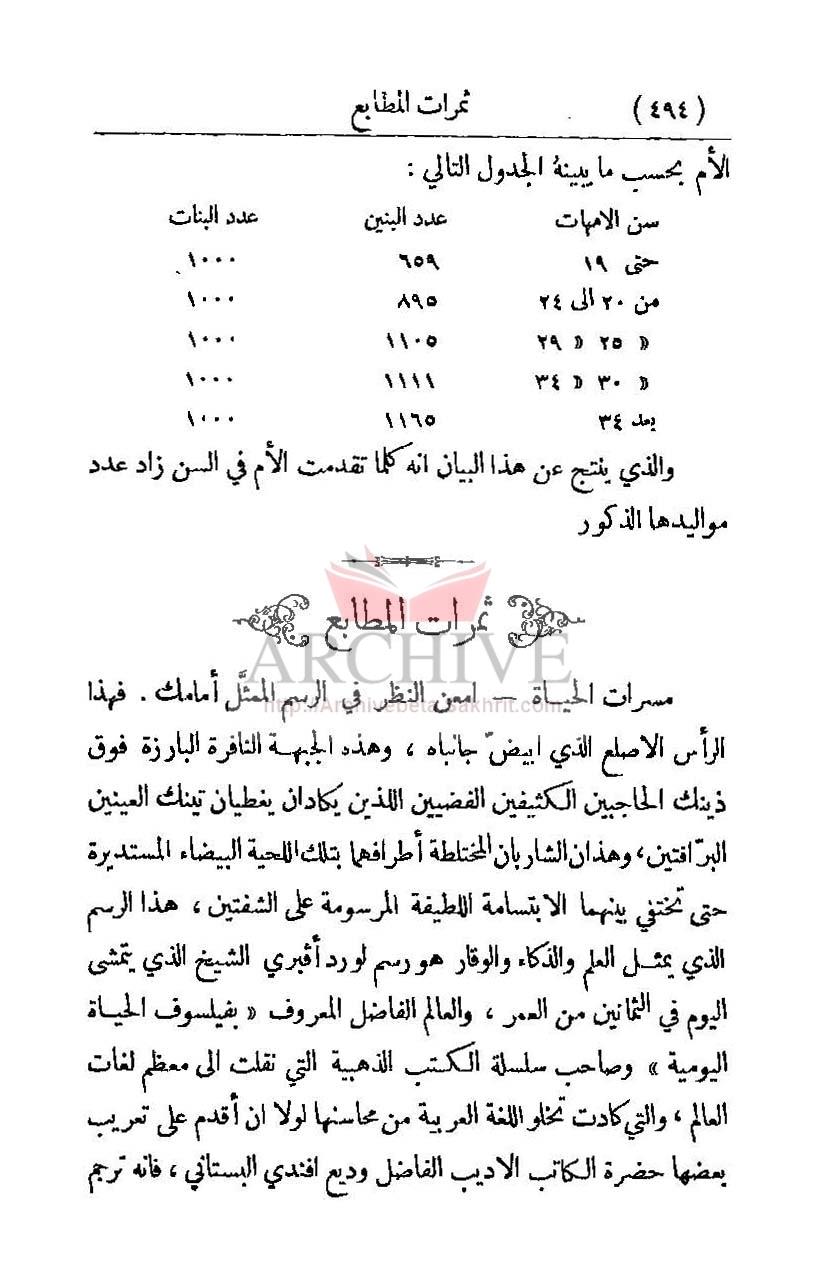 (٤٩٤) ثمرات المطابع
الأم بحسب ما يبينهُ الجدول التالي :
سن الامهات عدد البنين عدد البنات
حتى ١٩ ٦٥٩ ١٠٠٠
من ٢٠ الى ٢٤ ٨٩٥ ١٠٠٠
« ٢٥ « ٢٩ ١١٠٥ ١٠٠٠
« ٣٠ « ٣٤ ١١١١ ١٠٠٠
بعد ٣٤ ١١٦٥ ١٠٠٠
والذي ينتج عن هذا البيان انه كلما تقدمت الأم في السن زاد عدد
مواليدها الذكور
ثمرات المطابع
ARCHIVE
مسرات الحياة — امعن النظر في الرسم الممثَّل أمامك . فهذا
http://Archivebeta.Sakhrit.com
الرأس الاصلع الذي ابيضّ جانباه ، وهذه الجبهة النافرة البارزة فوق
ذينك الحاجبين الكثيفين الفضيين اللذين يكادان يغطيان تينك العينين
البرّاقتين، وهذان الشاربان المختلطة أطرافهما بتلك اللحية البيضاء المستديرة
حتى تختفي بينهما الابتسامة اللطيفة المرسومة على الشفتين ، هذا الرسم
الذي يمثل العلم والذكاء والوقار هو رسم لورد أڤبري الشيخ الذي يتمشى
اليوم في الثمانين من العمر ، والعالم الفاضل المعروف « بفيلسوف الحياة
اليومية » وصاحب سلسلة الكتب الذهبية التي نقلت الى معظم لغات
العالم ، والتي كادت تخلو اللغة العربية من محاسنها لولا ان أقدم على تعريب
بعضها حضرة الكاتب الاديب الفاضل وديع افندي البستاني ، فانه ترجم